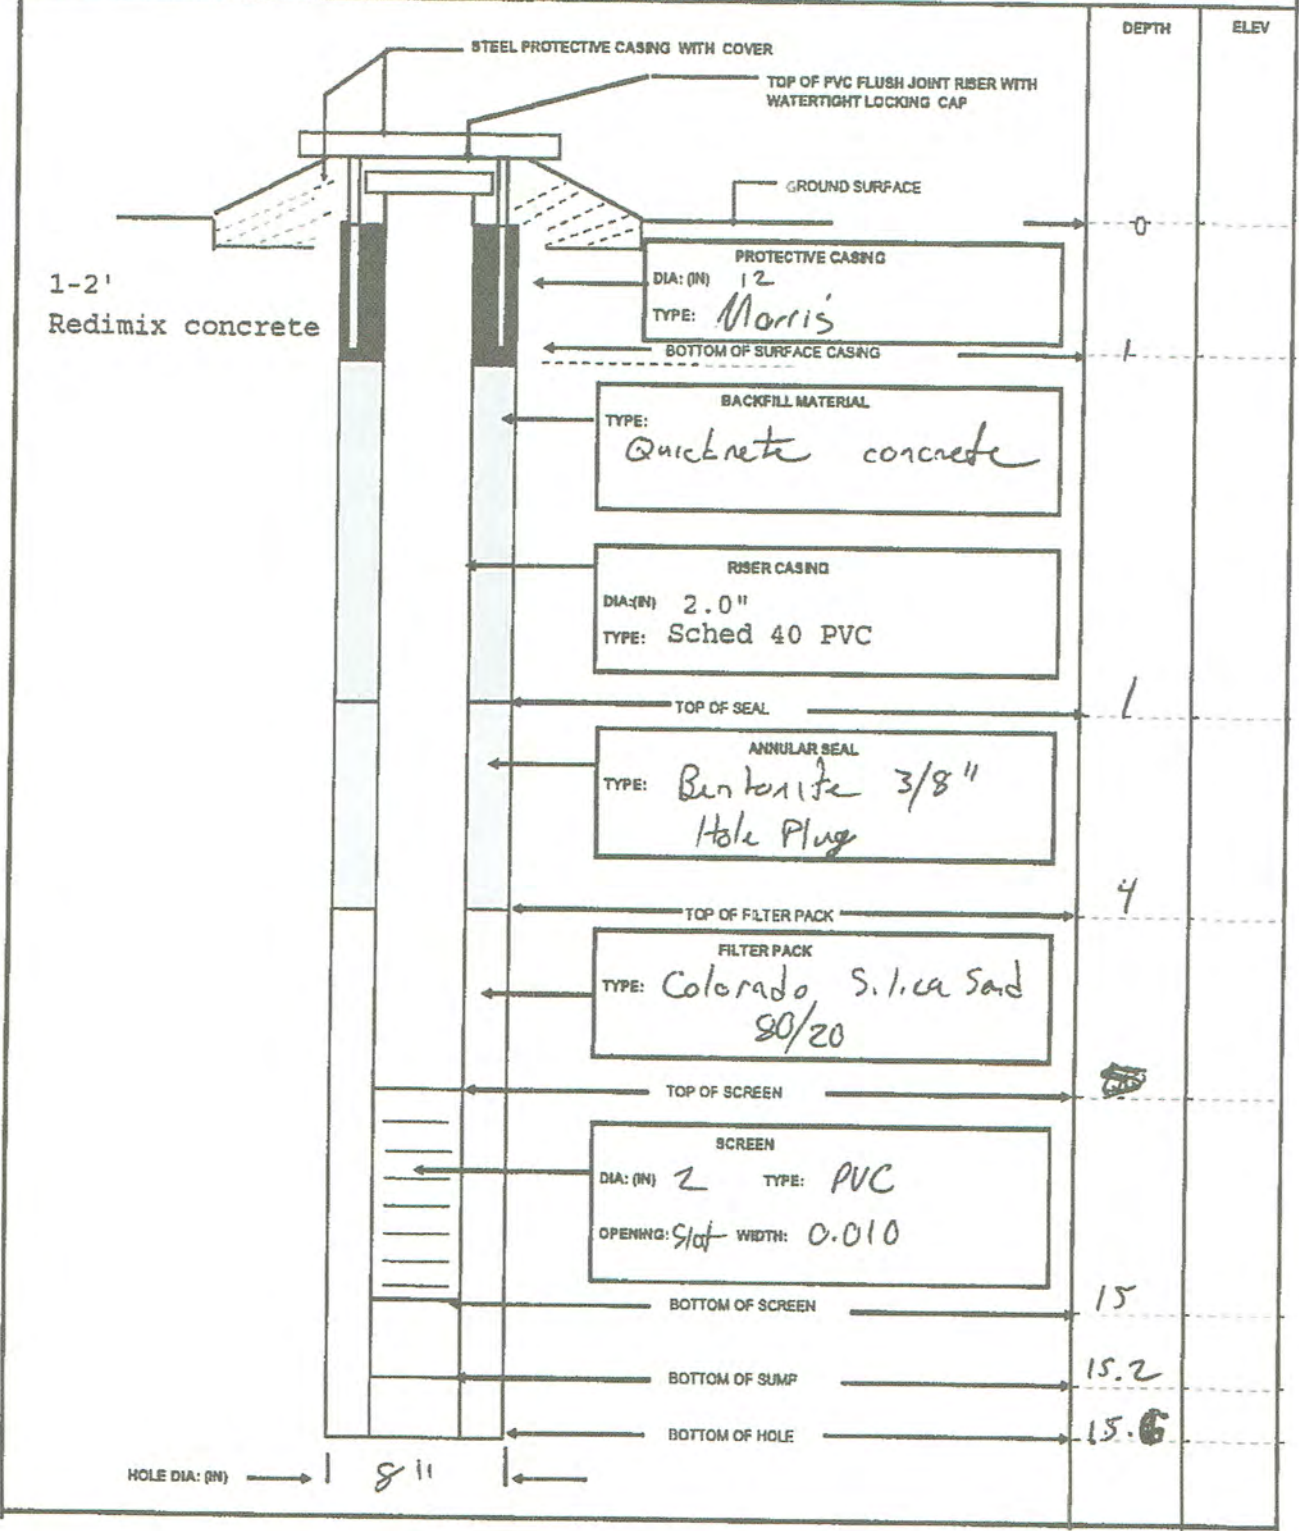 DEPTH
ELEV
STEEL PROTECTIVE CASING WITH COVER
TOP OF PVC FLUSH JOINT RISER WITH
WATERTIGHT LOCKING CAP
GROUND SURFACE
0
1-2'
Redimix concrete
PROTECTIVE CASING
DIA: (IN) 12
TYPE: Morris
BOTTOM OF SURFACE CASING
1
BACKFILL MATERIAL
TYPE:
Quickrete concrete
RISER CASING
DIA:(IN) 2.0"
TYPE: Sched 40 PVC
TOP OF SEAL
1
ANNULAR SEAL
TYPE: Bentonite 3/8"
Hole Plug
TOP OF FILTER PACK
4
FILTER PACK
TYPE: Colorado Silica Sand
80/20
TOP OF SCREEN
SCREEN
DIA: (IN) 2 TYPE: PVC
OPENING: Slot WIDTH: 0.010
BOTTOM OF SCREEN
15
BOTTOM OF SUMP
15.2
BOTTOM OF HOLE
HOLE DIA: (IN)
8"